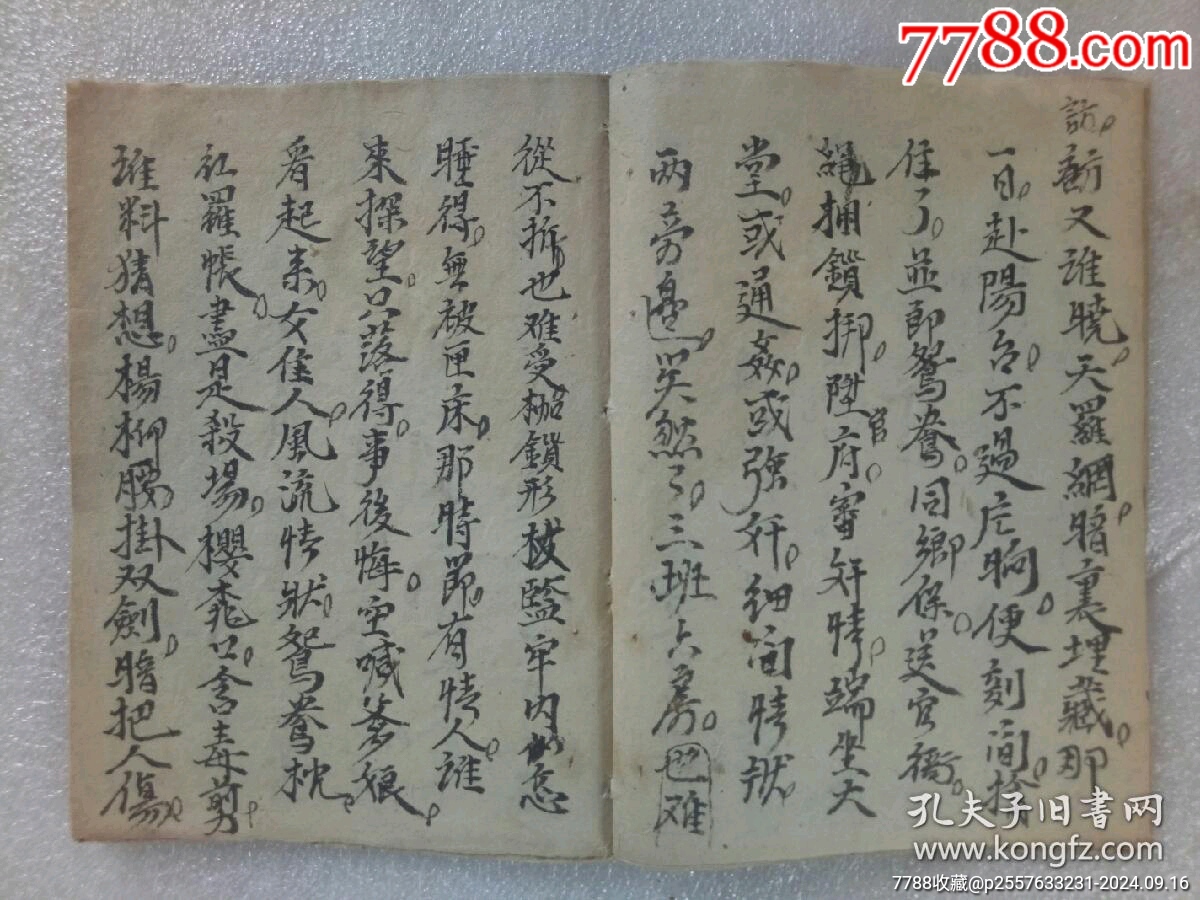 7788.com
訪
新又誰曉天羅網暗裏埋藏那
一日赴陽台不過片晌便刻間拴
住了並郎鴛鴦同鄉保送官衙
繩捆鎖綁陞官府審奸情端坐大
堂或通姦或強奸細問情狀
两旁邊笑煞了三班六房也难
從不拆也难受枷鎖形杖監牢内怎
睡得無被匣床那時節有情人誰
來探望只落得事後悔空喊爹娘
看起來女佳人風流情狀鴛鴦枕
紅羅帳盡是殺場櫻桃口含毒剪
誰料猜想楊柳腰掛双劍暗把人傷
孔夫子旧书网
www.kongfz.com
7788收藏@p2557633231-2024.09.16